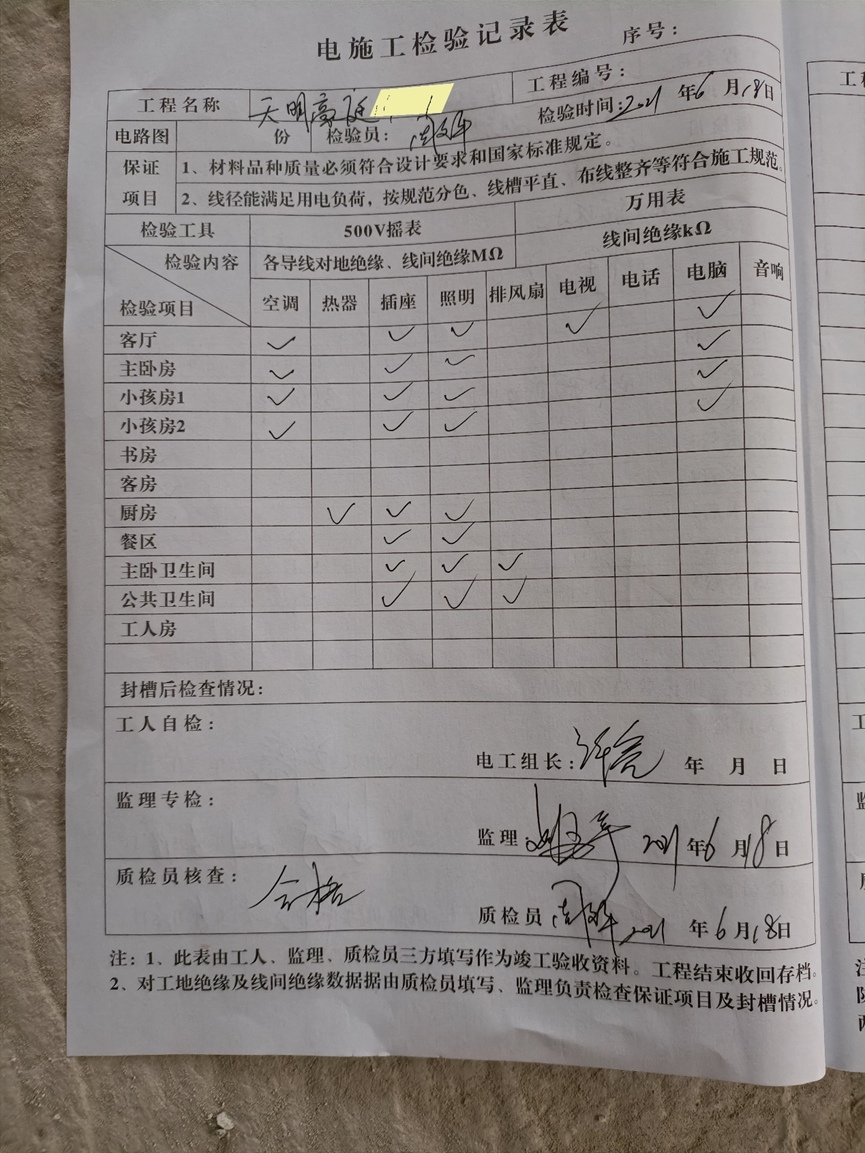 电施工检验记录表
序号：
工程名称 天明豪庭 工程编号：
电路图 份 检验员： 检验时间：2021年6月18日
保证项目 1、材料品种质量必须符合设计要求和国家标准规定。
2、线径能满足用电负荷，按规范分色、线槽平直、布线整齐等符合施工规范。
检验工具 500V摇表 万用表
检验内容 各导线对地绝缘、线间绝缘MΩ 线间绝缘kΩ
检验项目 空调 热器 插座 照明 排风扇 电视 电话 电脑 音响
客厅 ✓ ✓ ✓ ✓ ✓
主卧房 ✓ ✓ ✓ ✓
小孩房1 ✓ ✓ ✓ ✓
小孩房2 ✓ ✓ ✓ ✓
书房
客房
厨房 ✓ ✓ ✓
餐区 ✓ ✓
主卧卫生间 ✓ ✓ ✓
公共卫生间 ✓ ✓ ✓
工人房
封槽后检查情况：
工人自检：
电工组长：许亮 年 月 日
监理专检：
监理： 2021年6月18日
质检员核查： 合格
质检员 2021年6月18日
注：1、此表由工人、监理、质检员三方填写作为竣工验收资料。工程结束收回存档。
2、对工地绝缘及线间绝缘数据据由质检员填写、监理负责检查保证项目及封槽情况。